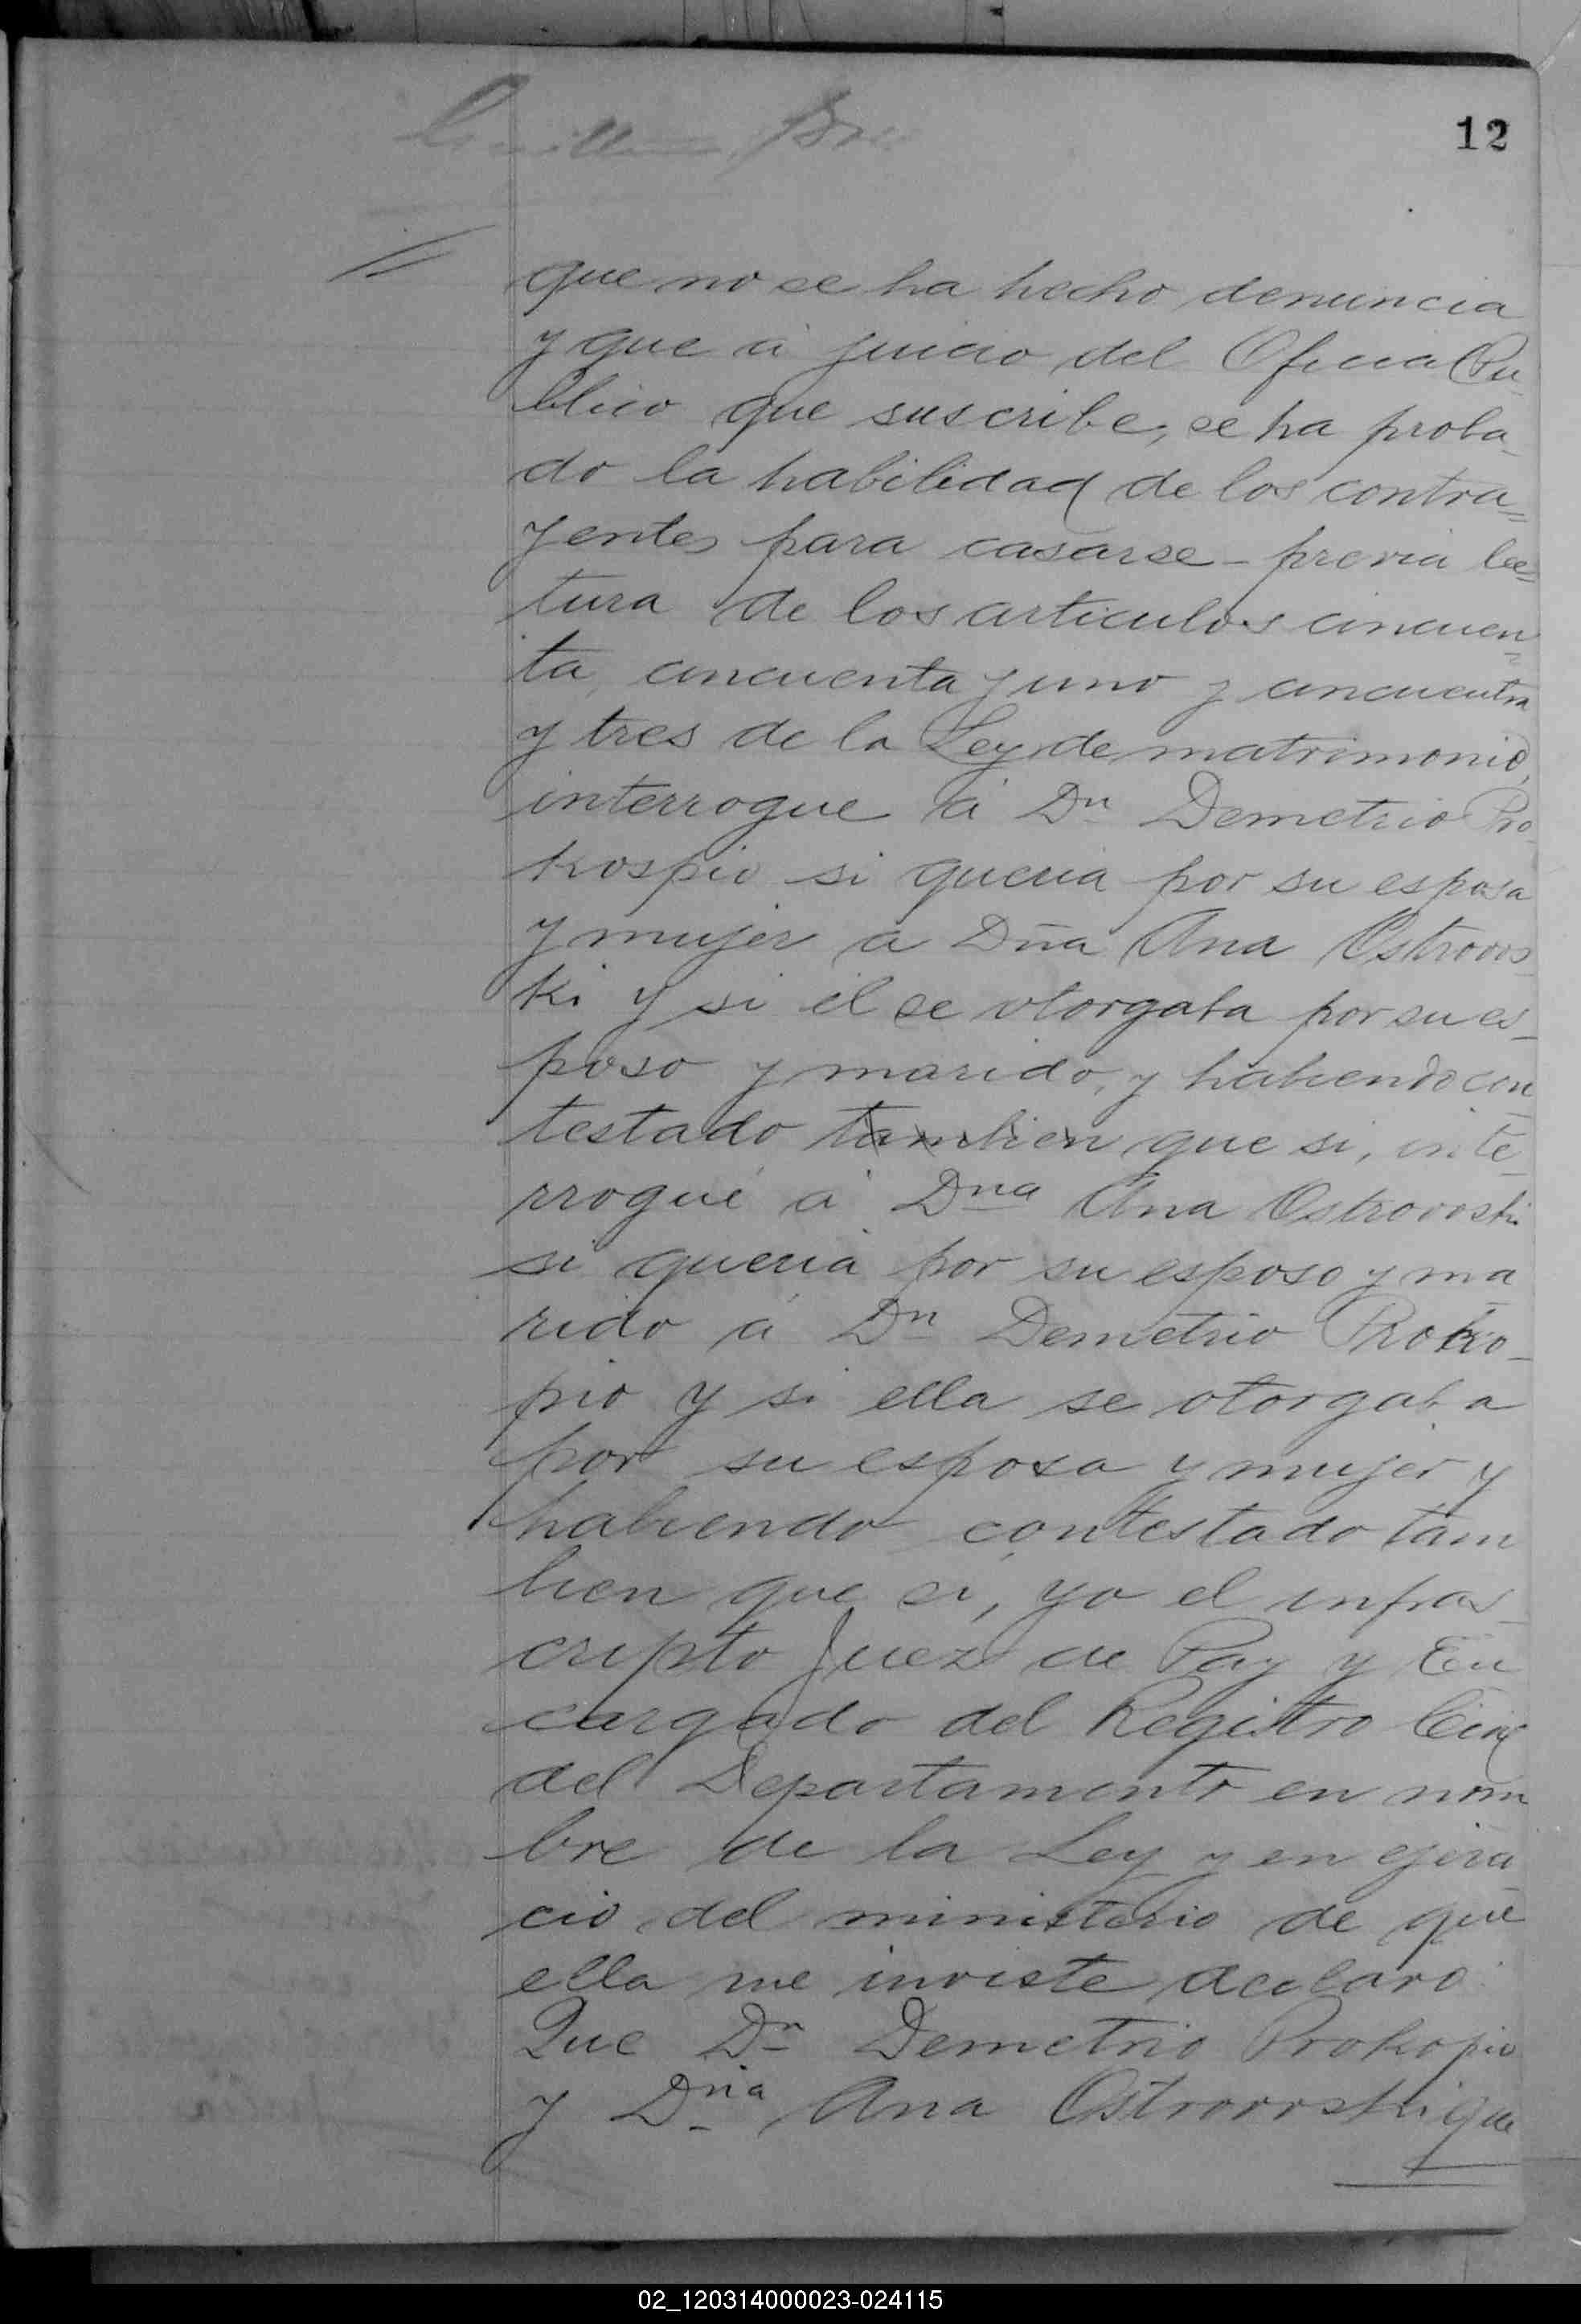 12
que no se ha hecho denuncia
y que á juicio del Oficial Pu-
blico que suscribe, se ha proba-
do la habilidad de los contra=
yentes para casarse - previa lec=
tura de los articulos cincuen=
ta, cincuenta y uno y cincuenta
y tres de la Ley de matrimonio,
interrogue á Dn Demetrio Pro-
kospio si queria por su esposa
y mujer a Dña Ana Ostrovos-
ki y si él se otorgaba por su es-
poso y marido, y habiendo con
testado tambien que si, inte-
rrogué á Dna Ana Ostrovoski
si queria por su esposo y ma
rido á Dn Demetrio Proko-
pio y si ella se otorgaba
por su esposa y mujer y
habiendo contestado tam
bien que si, yo el infras-
cripto Juez de Paz y En
cargado del Registro Civil
del Departamento en nom
bre de la Ley y en ejerci
cio del ministerio de que
ella me inviste declaro:
Que Dn Demetrio Prokopio
y Dña Ana Ostrovoski que
02_120314000023-024115